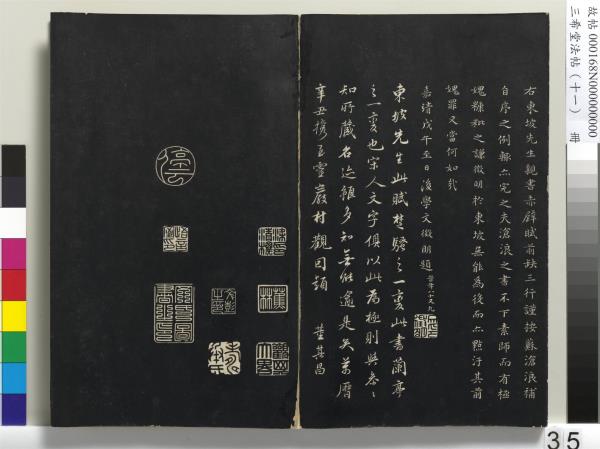 右東坡先生親書赤壁賦前缺三行謹按蘇滄浪補
自序之例輒亦完之夫滄浪之書不下素師而有極
愧糠粃之謙徵明於東坡無能為後而亦點汙其前
愧罪又當何如哉
嘉靖戊午至日後學文徵明題
時年八十又九
東坡先生此賦楚騷之一變此書蘭亭
之一變也宋人文字俱以此為極則與參
知所藏名跡雖多知無能逾是矣萬曆
辛丑攜至靈巖村觀因題 董其昌
停雲
故帖 000168N000000000
三希堂法帖(十一) 冊
35